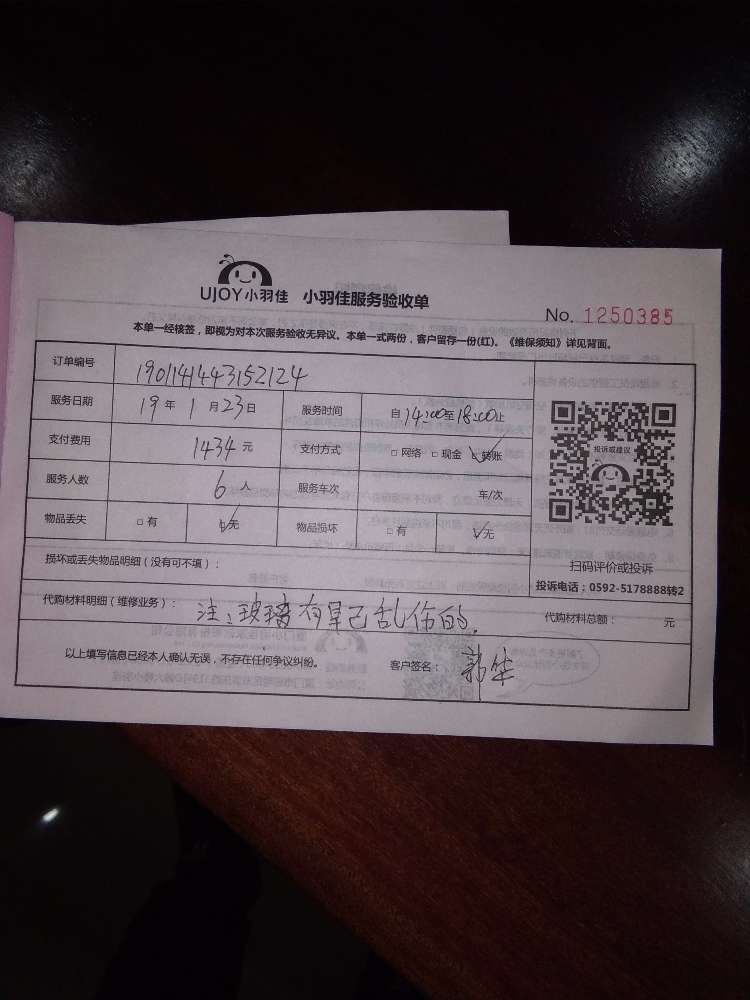 UJOY小羽佳 小羽佳服务验收单
No. 1250385
本单一经核签，即视为对本次服务验收无异议。本单一式两份，客户留存一份(红)。《维保须知》详见背面。
订单编号 190114144315​2124
服务日期 19年1月23日 服务时间 自14:00至18:00止
支付费用 1434元 支付方式 □网络 □现金 ☑转账
服务人数 6人 服务车次 车/次
物品丢失 □有 ☑无 物品损坏 □有 ☑无
投诉或建议
扫码评价或投诉
投诉电话：0592-5178888转2
损坏或丢失物品明细（没有可不填）：
代购材料明细（维修业务）： 注：玻璃有早已乱伤的 代购材料总额： 元
以上填写信息已经本人确认无误，不存在任何争议纠纷。 客户签名： 郭华